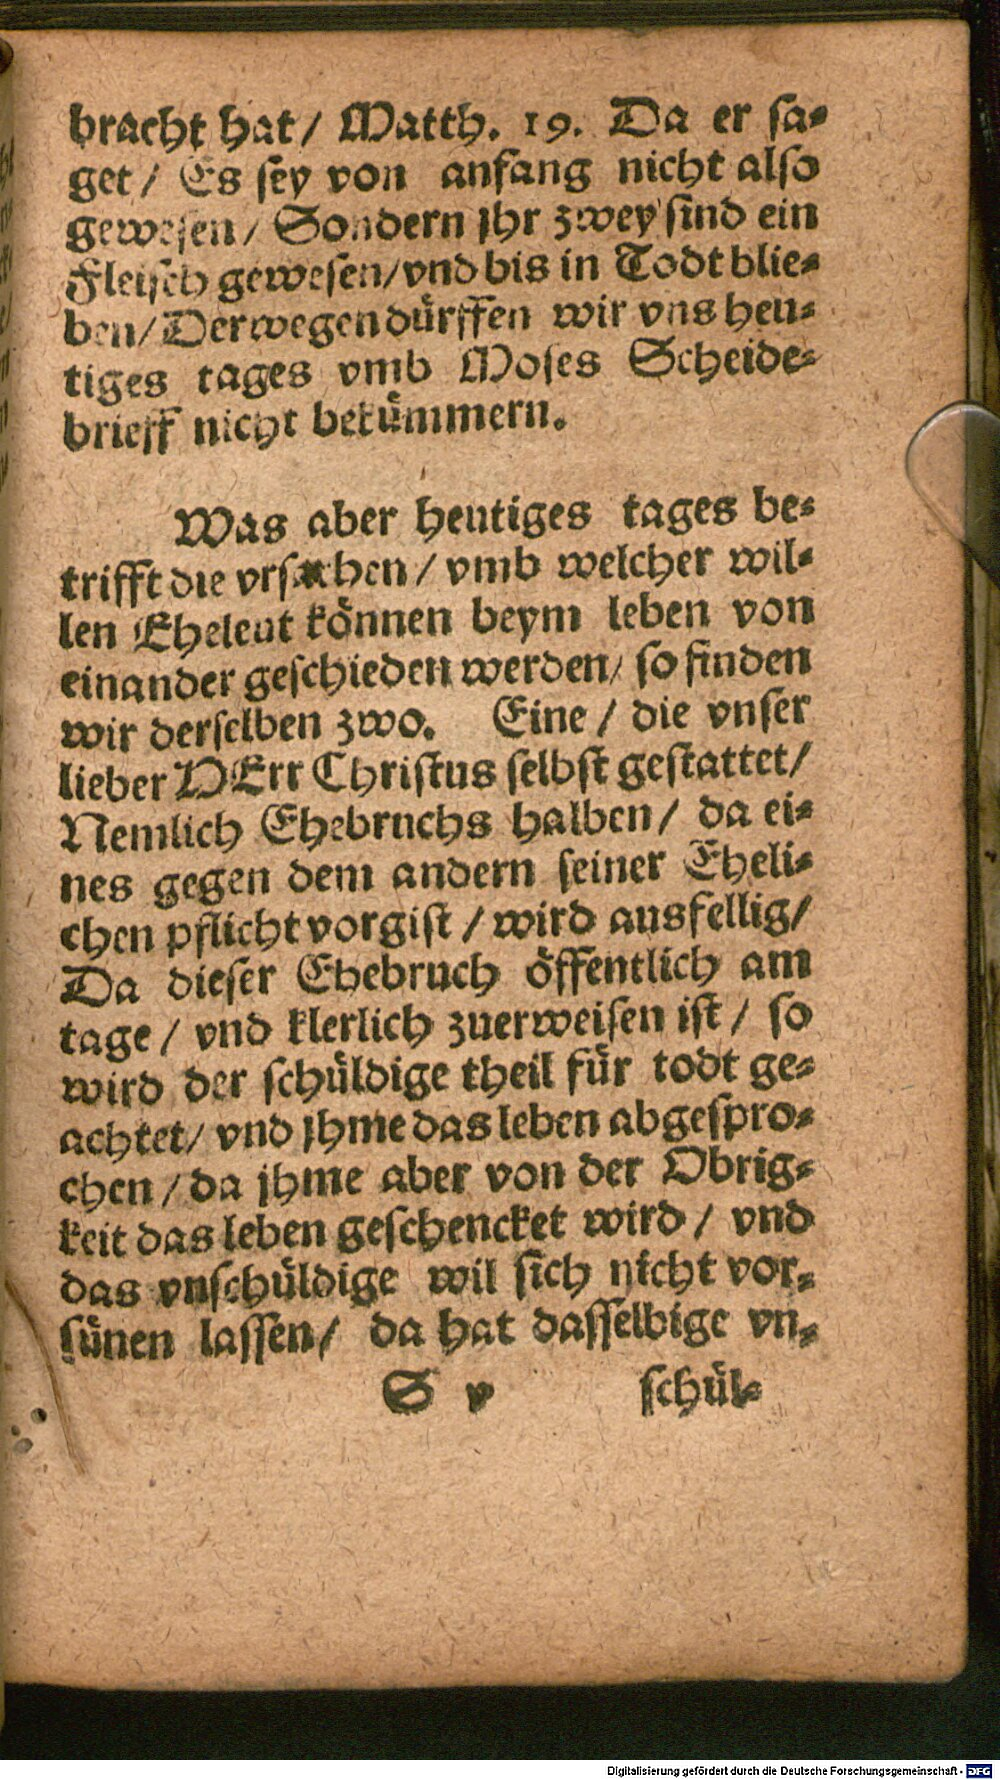 bracht hat / Matth. 19. Da er sa⸗
get / Es sey von anfang nicht also
gewesen / Sondern jhr zwey sind ein
Fleisch gewesen / vnd bis in Todt blie⸗
ben / Derwegen dürffen wir vns heu⸗
tiges tages vmb Moses Scheide⸗
brieff nicht bekümmern.
Was aber heutiges tages be⸗
trifft die vrsachen / vmb welcher wil⸗
len Eheleut können beym leben von
einander geschieden werden / so finden
wir derselben zwo. Eine / die vnser
lieber HErr Christus selbst gestattet /
Nemlich Ehebruchs halben / da ei⸗
nes gegen dem andern seiner Eheli⸗
chen pflicht vorgist / wird ausfellig /
Da dieser Ehebruch öffentlich am
tage / vnd klerlich zuerweisen ist / so
wird der schüldige theil für todt ge⸗
achtet / vnd jhme das leben abgespro⸗
chen / da jhme aber von der Obrig⸗
keit das leben geschencket wird / vnd
das vnschüldige wil sich nicht vor⸗
sünen lassen / da hat dasselbige vn⸗
S v schül⸗
Digitalisierung gefördert durch die Deutsche Forschungsgemeinschaft - DFG